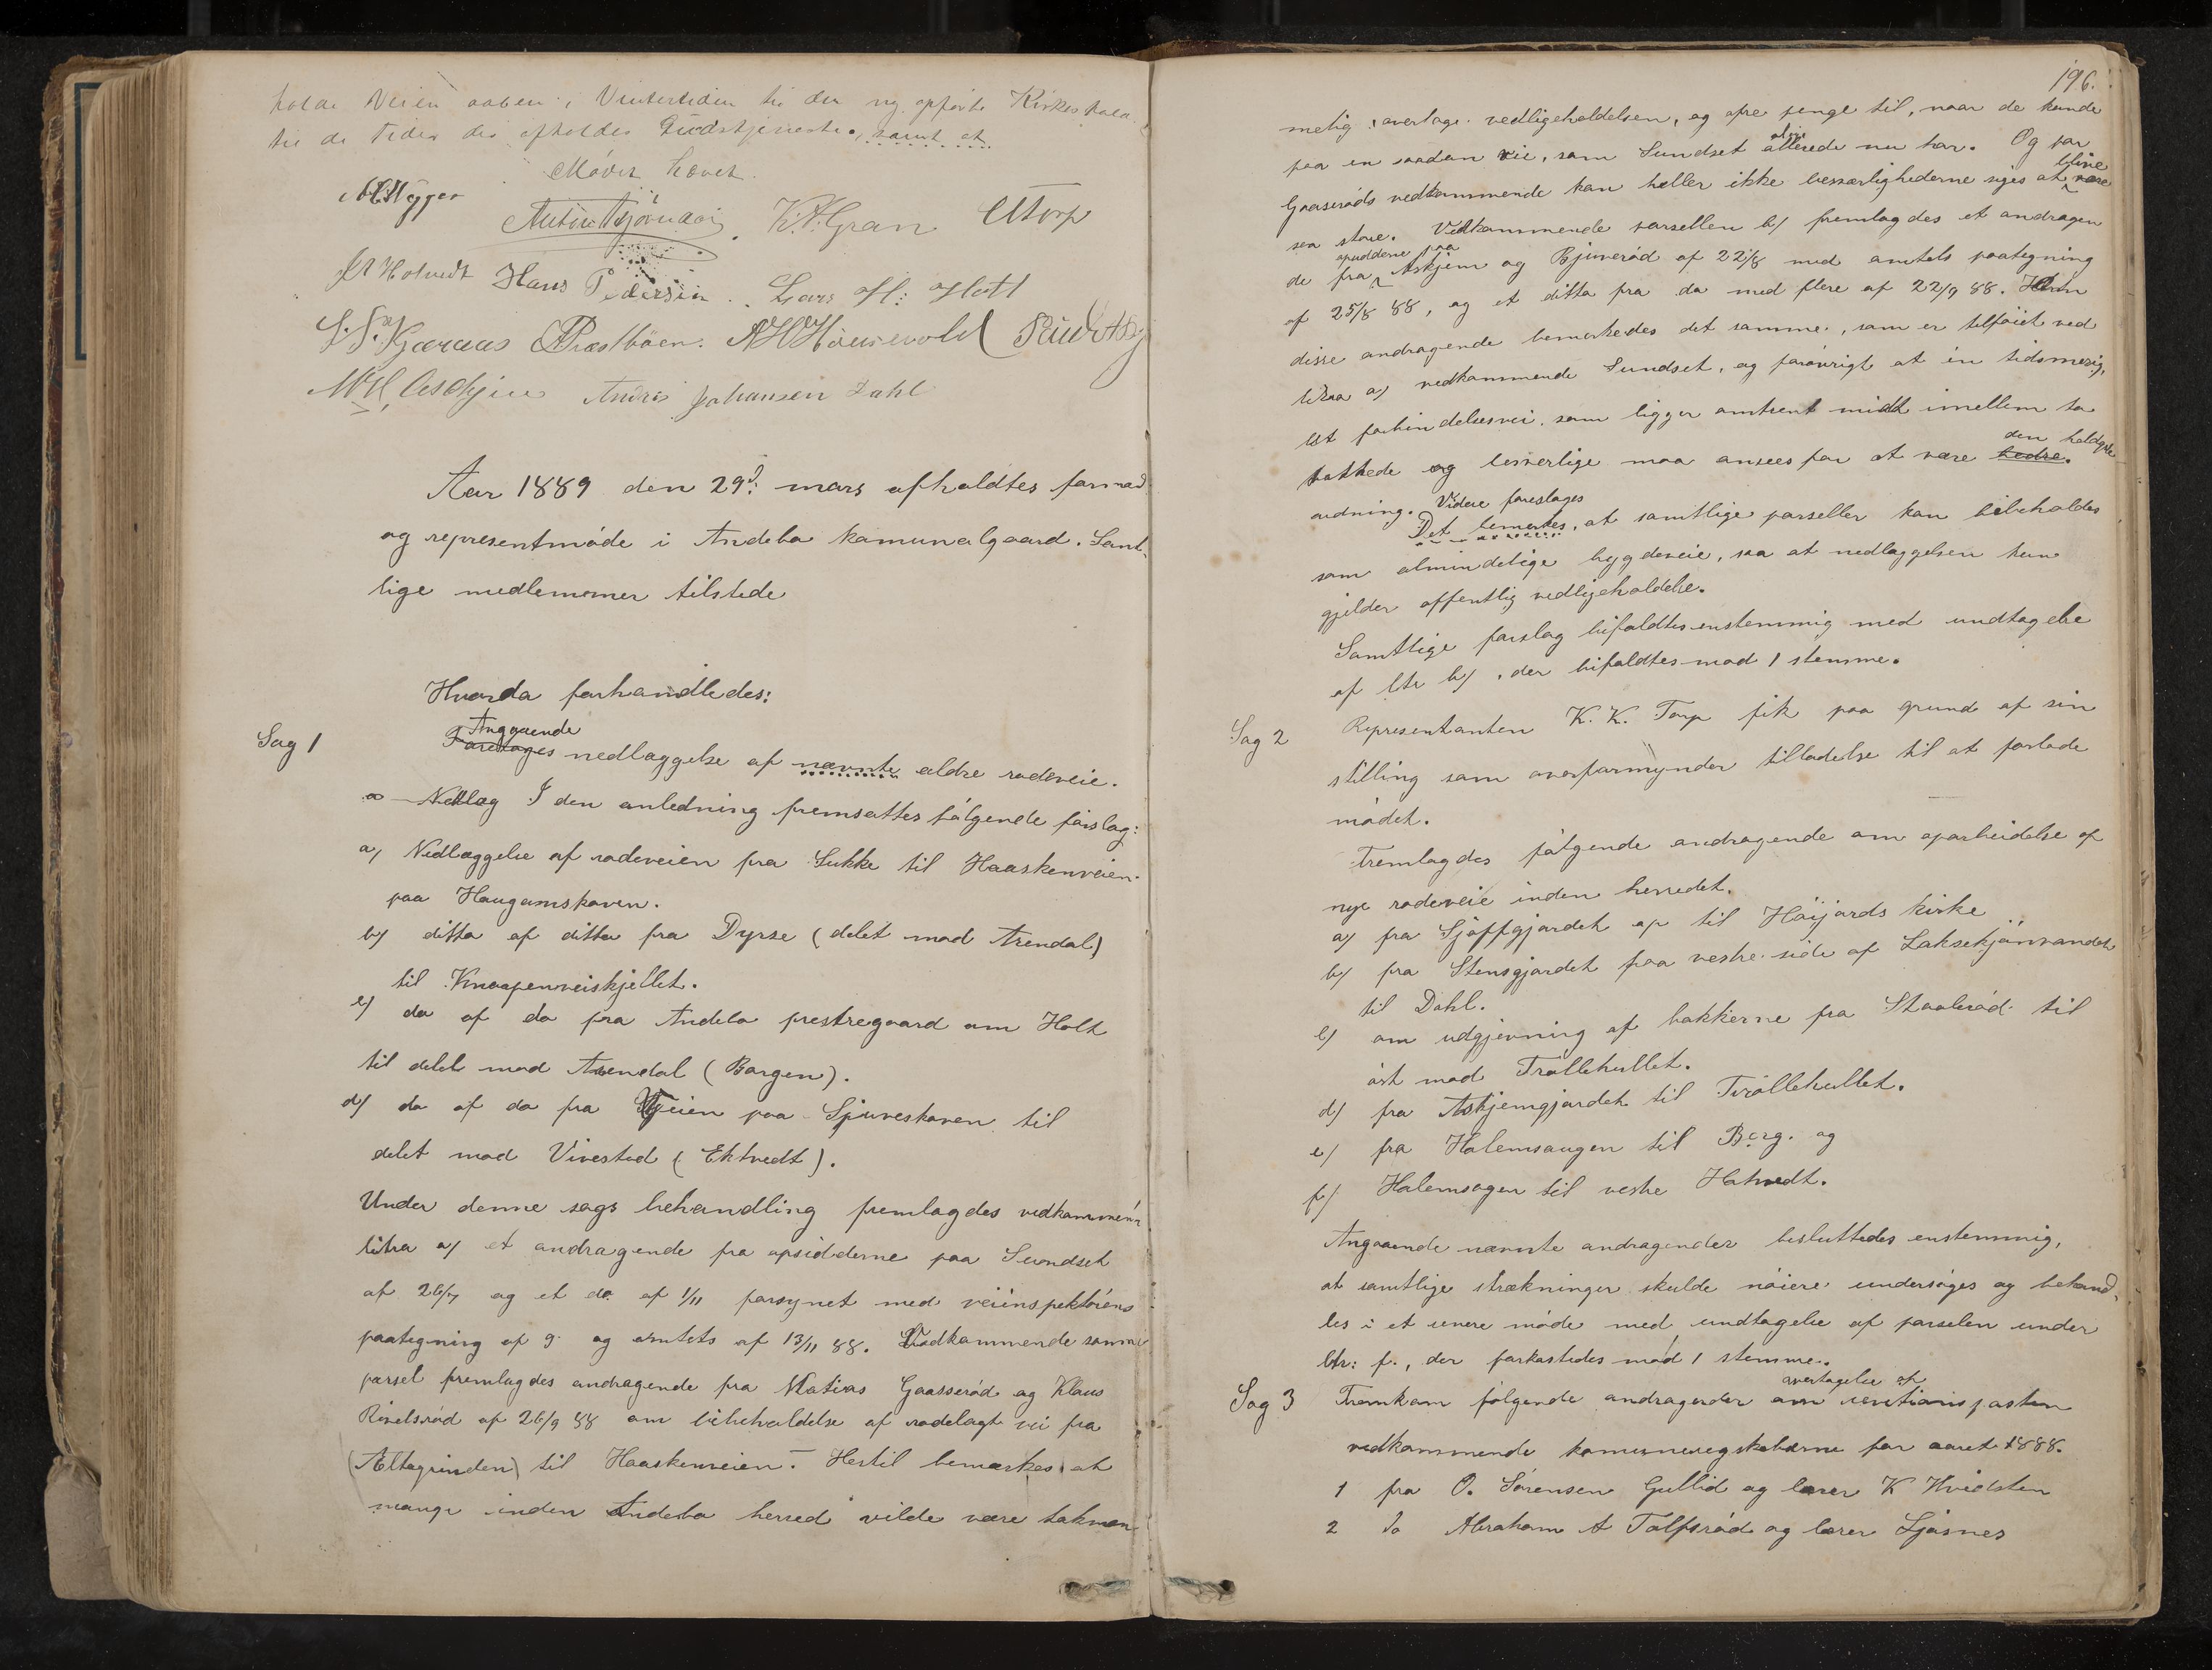 holde Veien aaben i Vintertiden til den ny opførte Kirke
til de Tider der afholdes Gudstjeneste, samt at
Mødet hævet.
K. A. Gran
Hans Pedersen Lars H: Holt
Andris Johansen Dahl
Aar 1889 den 29d: mars afholdtes formad
og representmøde i Andebo komunalgaard. Samt-
lige medlemmer tilstede
Hvorda forhandledes:
Sag 1 Foretages Angaaende nedlæggelse af nævnte ældre rodeveie.
a Nedlæg I den anledning fremsattes følgende forslag:
a) Nedlæggelse af rodeveien fra Sukke til Haaskenveien
paa Haugamskoven.
b) ditto af ditto fra Dyrsø (delet mod Arendal)
til Knaapenveiskjellet.
c) do af do fra Andebo prestegaard om Holt
til delet mod Arendal (Borgen).
d) do af do fra Veien paa Sjueskoven til
delet mod Vivestad (Ektvedt).
Under denne sags behandling fremlagdes vedkommen
litra a) et andragende fra opsidderne paa Sundset
af 26/7 og et do af 1/11 forsynet med veiinspektørens
paategning af 9 og amtets af 13/11 88. Vedkommende samme
parsel fremlagdes andragende fra Matias Gaaserød og Klaus
af 26/9 88 om bibeholdelse af rodelagt vei fra
(Æltegrinden) til Haaskenveien. Hertil bemærkes at
mange inden Andebo herred vilde være takmen
196.
melig overtage vedligeholdelsen, og ofre penge til, naar de kunde
faa en saadan vei, som Sundset allerede nu har. Og for
Gaaserøds vedkommende kan heller ikke besværlighederne siges at være blive
saa store. Vedkommende parsellen b) fremlagdes et andragen
de fra opsidderne paa Askjem og Bjuerød af 22/8 med amtets paategning
af 25/8 88, og et ditto fra do med flere af 22/9 88. Om
disse andragende bemærkedes det samme, som er tilføiet ved
litra a) vedkommende Sundset, og forøvrigt at en tidsmæsig,
let forbindelsesvei, som ligger omtrent midt imellem to
bakkede og besværlige maa ansees for at være bedre. den heldigste
ordning. Videre foreslages
Det bemerkes, at samtlige parseller kan bibeholdes
som almindelige bygdeveie, saa at nedlæggelsen kun
gjelder offentlig vedligeholdelse.
Samtlige forslag bifaldtes enstemmig med undtagelse
af ltr b), der bifaldtes mod 1 stemme.
Sag 2 Representanten K. K. Torp fik paa grund af sin
stilling som overformynder tilladelse til at forlade
mødet.
Fremlagdes følgende andragende om oparbeidelse af
nye rodeveie inden herredet.
a) fra Sjøffgjordet op til Høijords kirke
b) fra Stensgjordet paa vestre side af Laksekjønvandet
til Dahl.
c) om udgjevning af bakkerne fra Staalerød til
øst mod Trollehullet.
d) fra Askjemgjordet til Trollehullet.
e) fra Holemsaugen til Berg. og
f) Holemsagen til vestre Hotvedt.
Angaaende nævnte andragender besluttedes enstemmig,
at samtlige strækninger skulde nøiere undersøges og behand-
les i et senere møde med undtagelse af parselen under
ltr: f., der forkastedes mod 1 stemme.
Sag 3 Fremkom følgende andragender om overtagelse af revisionsposten
vedkommende komuneregskaberne for aaret 1888.
1 fra O. Sørensen Gullid og lærer K Hvidsten
2 do Abraham A Tolfsrød og lærer Sjøsnes